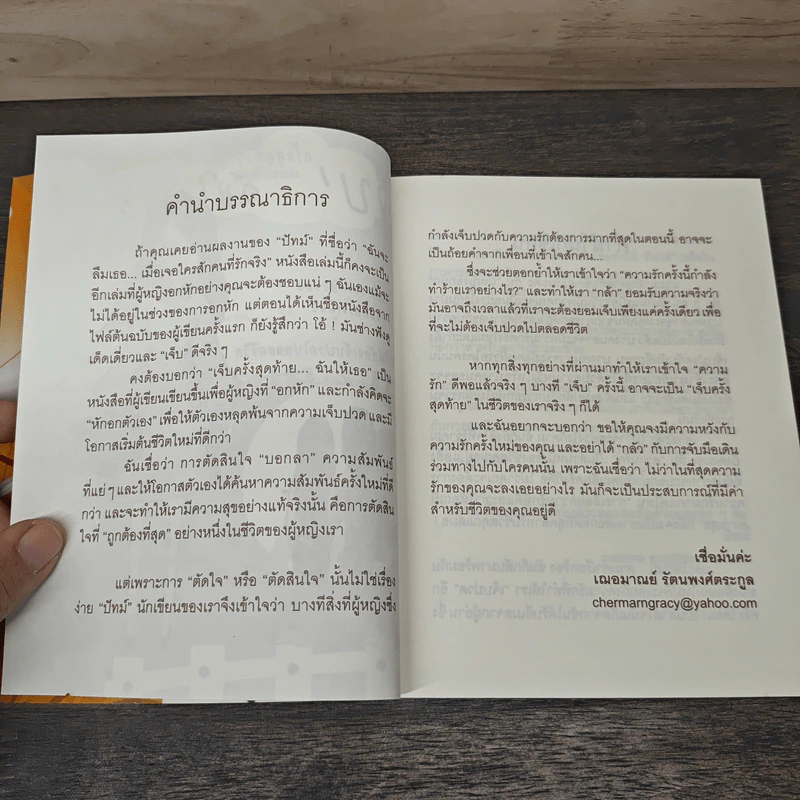 คำนำบรรณาธิการ
ถ้าคุณเคยอ่านผลงานของ “ปัทม์” ที่ชื่อว่า “ฉันจะ
ลืมเธอ... เมื่อเจอใครสักคนที่รักจริง” หนังสือเล่มนี้ก็คงจะเป็น
อีกเล่มที่ผู้หญิงอกหักอย่างคุณจะต้องชอบแน่ ๆ ฉันเองแม้จะ
ไม่ได้อยู่ในช่วงของการอกหัก แต่ตอนได้เห็นชื่อหนังสือจาก
ไฟล์ต้นฉบับของผู้เขียนครั้งแรก ก็ยังรู้สึกว่า โอ้ ! มันช่างฟังดู
เด็ดเดี่ยวและ “เจ็บ” ดีจริง ๆ
คงต้องบอกว่า “เจ็บครั้งสุดท้าย... ฉันให้เธอ” เป็น
หนังสือที่ผู้เขียนเขียนขึ้นเพื่อผู้หญิงที่ “อกหัก” และกำลังคิดจะ
“หักอกตัวเอง” เพื่อให้ตัวเองหลุดพ้นจากความเจ็บปวด และมี
โอกาสเริ่มต้นชีวิตใหม่ที่ดีกว่า
ฉันเชื่อว่า การตัดสินใจ “บอกลา” ความสัมพันธ์
ที่แย่ ๆ และให้โอกาสตัวเองได้ค้นหาความสัมพันธ์ครั้งใหม่ที่ดี
กว่า และจะทำให้เรามีความสุขอย่างแท้จริงนั้น คือการตัดสิน
ใจที่ “ถูกต้องที่สุด” อย่างหนึ่งในชีวิตของผู้หญิงเรา
แต่เพราะการ “ตัดใจ” หรือ “ตัดสินใจ” นั้นไม่ใช่เรื่อง
ง่าย “ปัทม์” นักเขียนของเราจึงเข้าใจว่า บางทีสิ่งที่ผู้หญิงซึ่ง
กำลังเจ็บปวดกับความรักต้องการมากที่สุดในตอนนี้ อาจจะ
เป็นถ้อยคำจากเพื่อนที่เข้าใจสักคน...
ซึ่งจะช่วยตอกย้ำให้เราเข้าใจว่า “ความรักครั้งนี้กำลัง
ทำร้ายเราอย่างไร?” และทำให้เรา “กล้า” ยอมรับความจริงว่า
มันอาจถึงเวลาแล้วที่เราจะต้องยอมเจ็บเพียงแค่ครั้งเดียว เพื่อ
ที่จะไม่ต้องเจ็บปวดไปตลอดชีวิต
หากทุกสิ่งทุกอย่างที่ผ่านมาทำให้เราเข้าใจ “ความ
รัก” ดีพอแล้วจริง ๆ บางที “เจ็บ” ครั้งนี้ อาจจะเป็น “เจ็บครั้ง
สุดท้าย” ในชีวิตของเราจริง ๆ ก็ได้
และฉันอยากจะบอกว่า ขอให้คุณจงมีความหวังกับ
ความรักครั้งใหม่ของคุณ และอย่าได้ “กลัว” กับการจับมือเดิน
ร่วมทางไปกับใครคนนั้น เพราะฉันเชื่อว่า ไม่ว่าในที่สุดความ
รักของคุณจะลงเอยอย่างไร มันก็จะเป็นประสบการณ์ที่มีค่า
สำหรับชีวิตของคุณอยู่ดี
เชื่อมั่นค่ะ
เฌอมาณย์ รัตนพงศ์ตระกูล
chermarngracy@yahoo.com